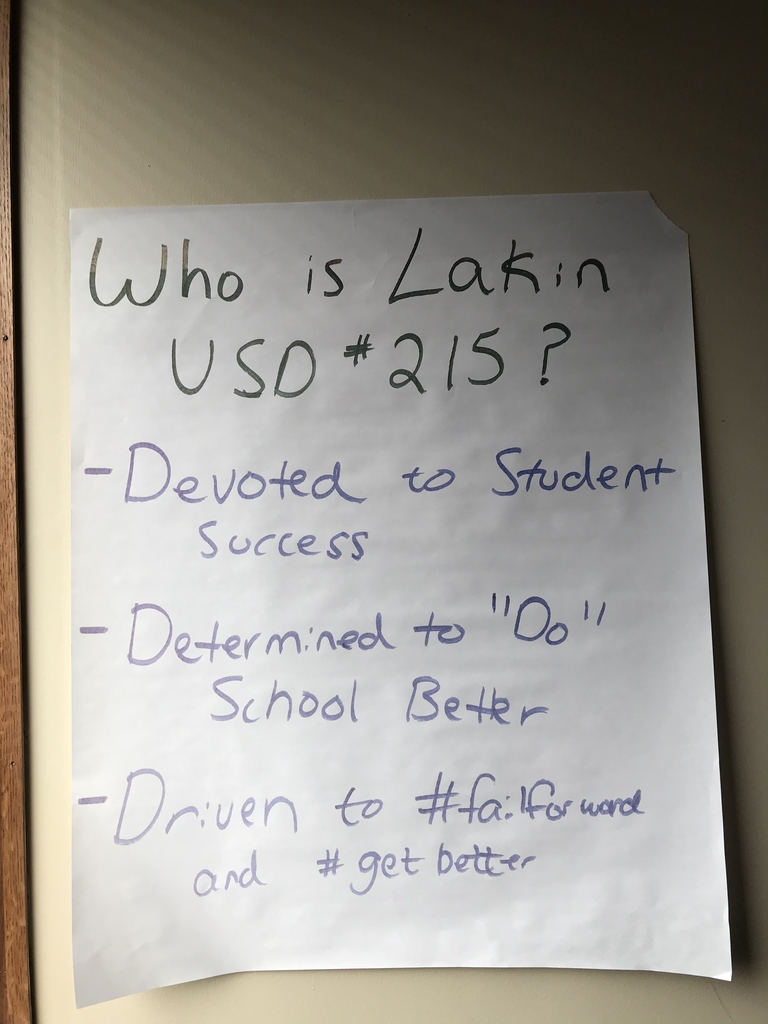 Who is Lakin
USD #215?
- Devoted to Student
Success
- Determined to "Do"
School Better
- Driven to #failforward
and #getbetter